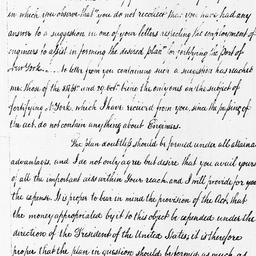 in which you observe that "you do not recollect that you have had any
answer to a suggestion in one of your letters respecting the employment of
engineers to assist in forming the desired plan" for fortifying the Port of
New York..... no letter from you containing such a suggestion has reached
me those of the and being the only ones on the subject of
fortifying N. York, which I have received from you, since the passing of
the act, do not contain anything about Engineers.
The plan doubtless should be formed under all attaina
advantages, and I do not only agree but desire that you avail yours
of all the important aids within Your reach, and I will provide for you
the expense. It is proper to bear in mind the provision of the Act, that
the money appropriated by it to this object be expended under the
direction of the President of the United States; it is therefore
proper that the plan in question should be formed as much as